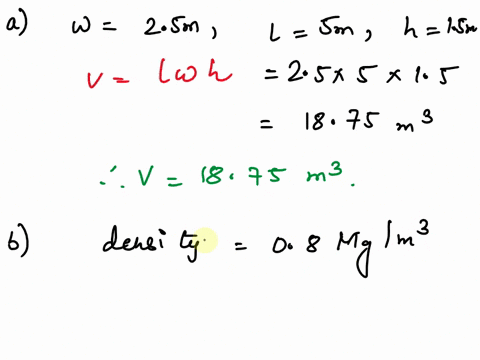 a) w = 2.5m, l = 5m, h = 1.5m
V = lwh = 2.5 × 5 × 1.5
= 18.75 m³
∴ V = 18.75 m³.
b) density = 0.8 Mg/m³